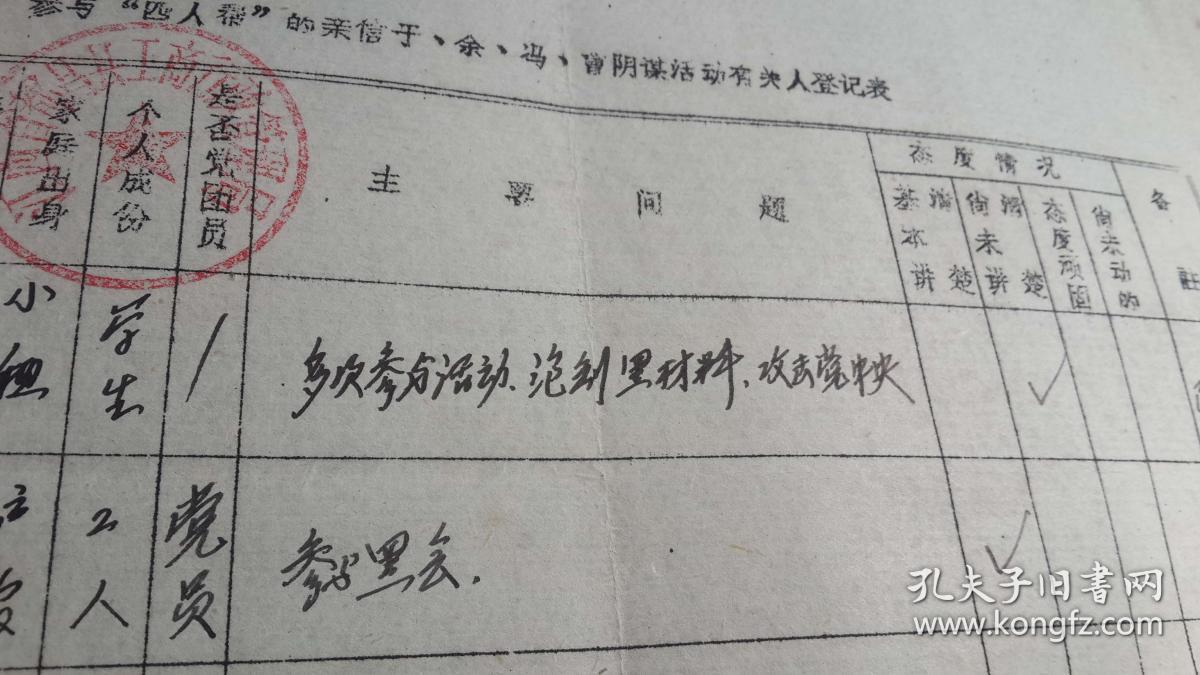 参与“四人帮”的亲信于、余、冯、曹阴谋活动有关人登记表
家庭出身 个人成份 是否党团员 主要问题 态度情况 备註
基本讲清楚 尚未讲清楚 态度顽固 尚未动的
小 学生 / 多次参与活动、泡制黑材料、攻击党中央 ✓
工人 党员 参与黑会. ✓
孔夫子旧书网
www.kongfz.com